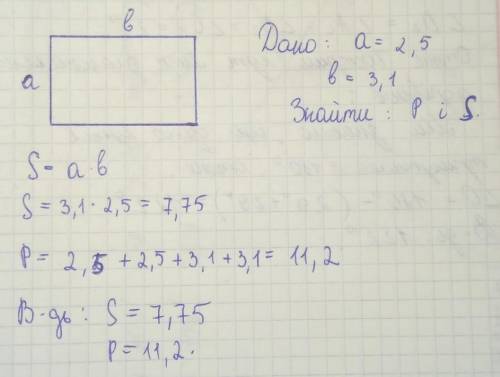 в
а
Дано: а = 2,5
в = 3,1
Знайти: P і S.
S = а·в
S = 3,1 · 2,5 = 7,75
P = 2,5 + 2,5 + 3,1 + 3,1 = 11,2
В-дь: S = 7,75
P = 11,2.